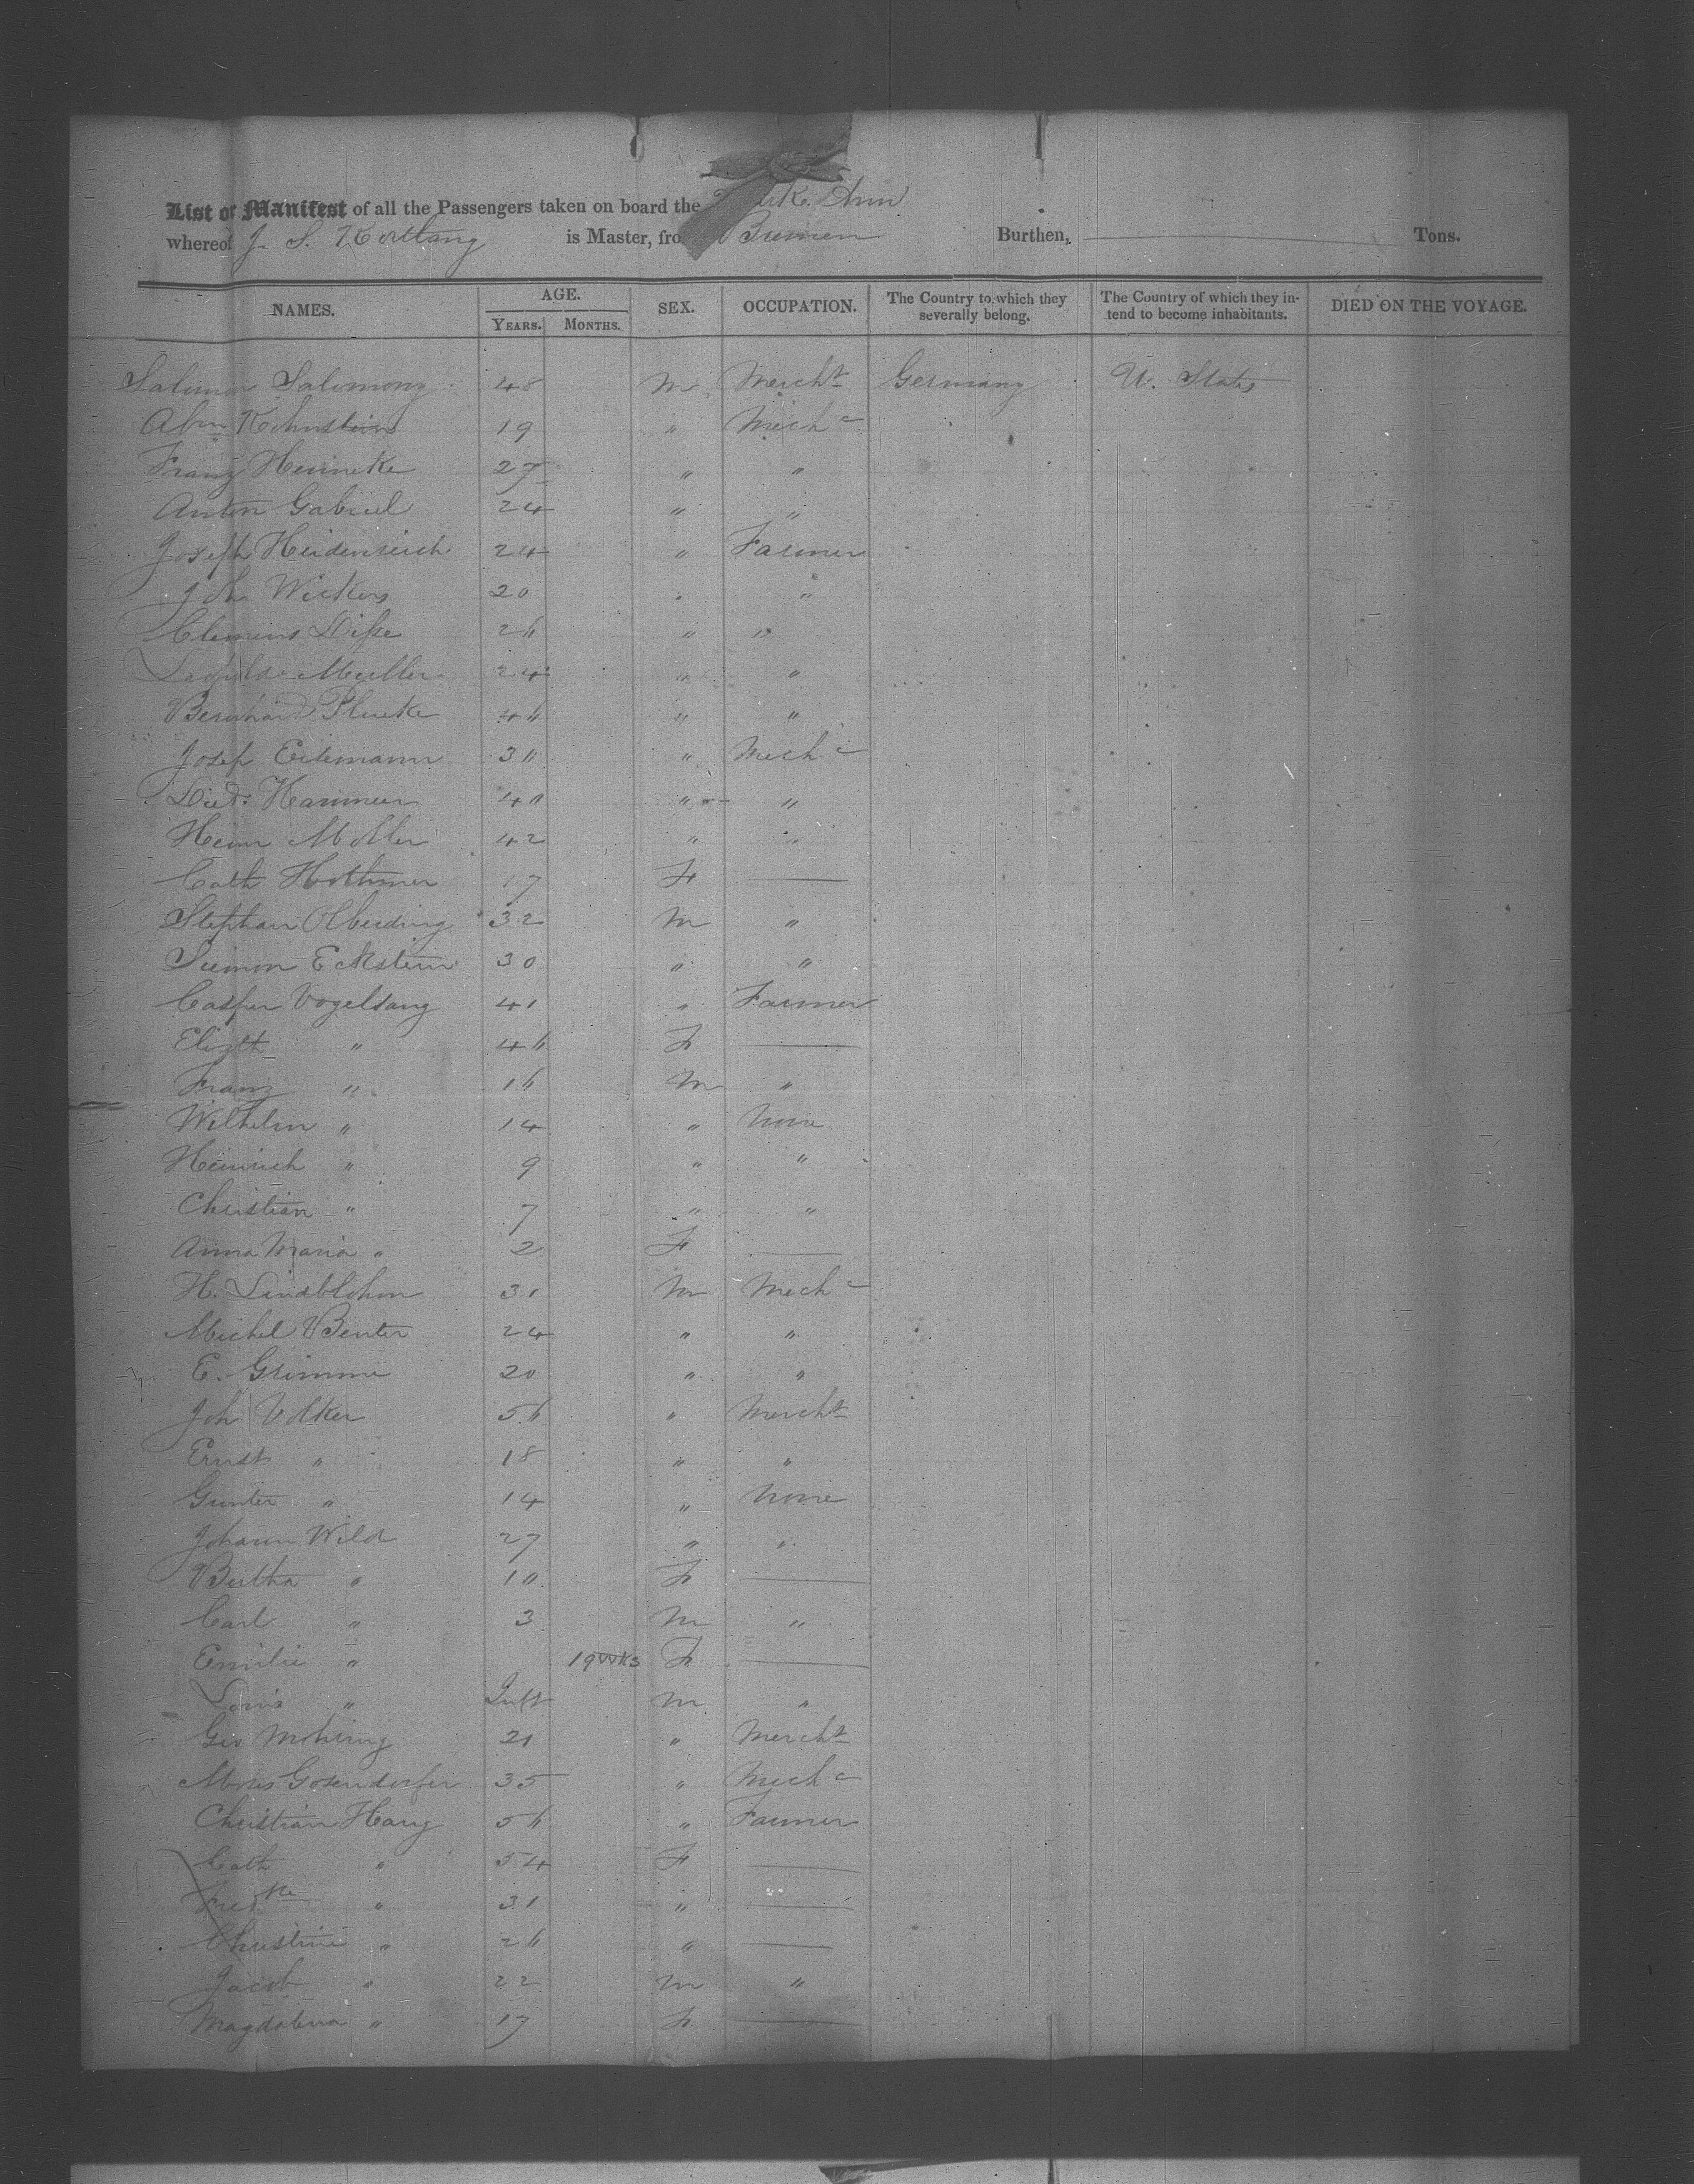 List or Manifest of all the Passengers taken on board the Ann
whereof J. S. is Master, from Bremen Burthen, Tons.
NAMES. AGE. SEX. OCCUPATION. The Country to which they severally belong. The Country of which they intend to become inhabitants. DIED ON THE VOYAGE.
YEARS. MONTHS.
Salomon Salomony 48 M Mercht Germany U. States
Abm Kohnstein 19 " Mech c
Franz Henneke 27 " "
Anton Gabriel 24 " "
Joseph Heidenreich 24 " Farmer
Joh Wickers 20 " "
Clemens 26 " "
Leopold Muller 24 " "
Bernhard Plueke 46 " "
Josep Eilemann 30 " Mech c
Died. Hammer 40 " "
Heinr Moller 42 " "
Cath Hothmer 17 F —
Stephan Olberding 32 M "
Siemon Eckstein 30 " "
Casper Vogelsang 41 " Farmer
Elizth " 46 F —
Franz " 16 M "
Wilhelm " 14 " None
Heinrich " 9 " "
Christian " 7 " "
Anna Maria " 2 F —
H. Lindblohm 31 M Mech c
Michel Benter 24 " "
E. Grimme 20 " "
Joh Volker 56 " Mercht
Ernst " 18 " "
Gunter " 14 " None
Johann Wild 27 " "
Bertha " 10 F —
Carl " 3 M "
Emilie " 19 Wks F —
Louis " Inft M "
Geo Mohring 21 " Mercht
Moses Gosendorfer 35 " Mech c
Christian Haug 56 " Farmer
Cath " 54 F —
Fredke " 31 " —
Christine " 26 " —
Jacob " 22 M "
Magdalena " 17 F —